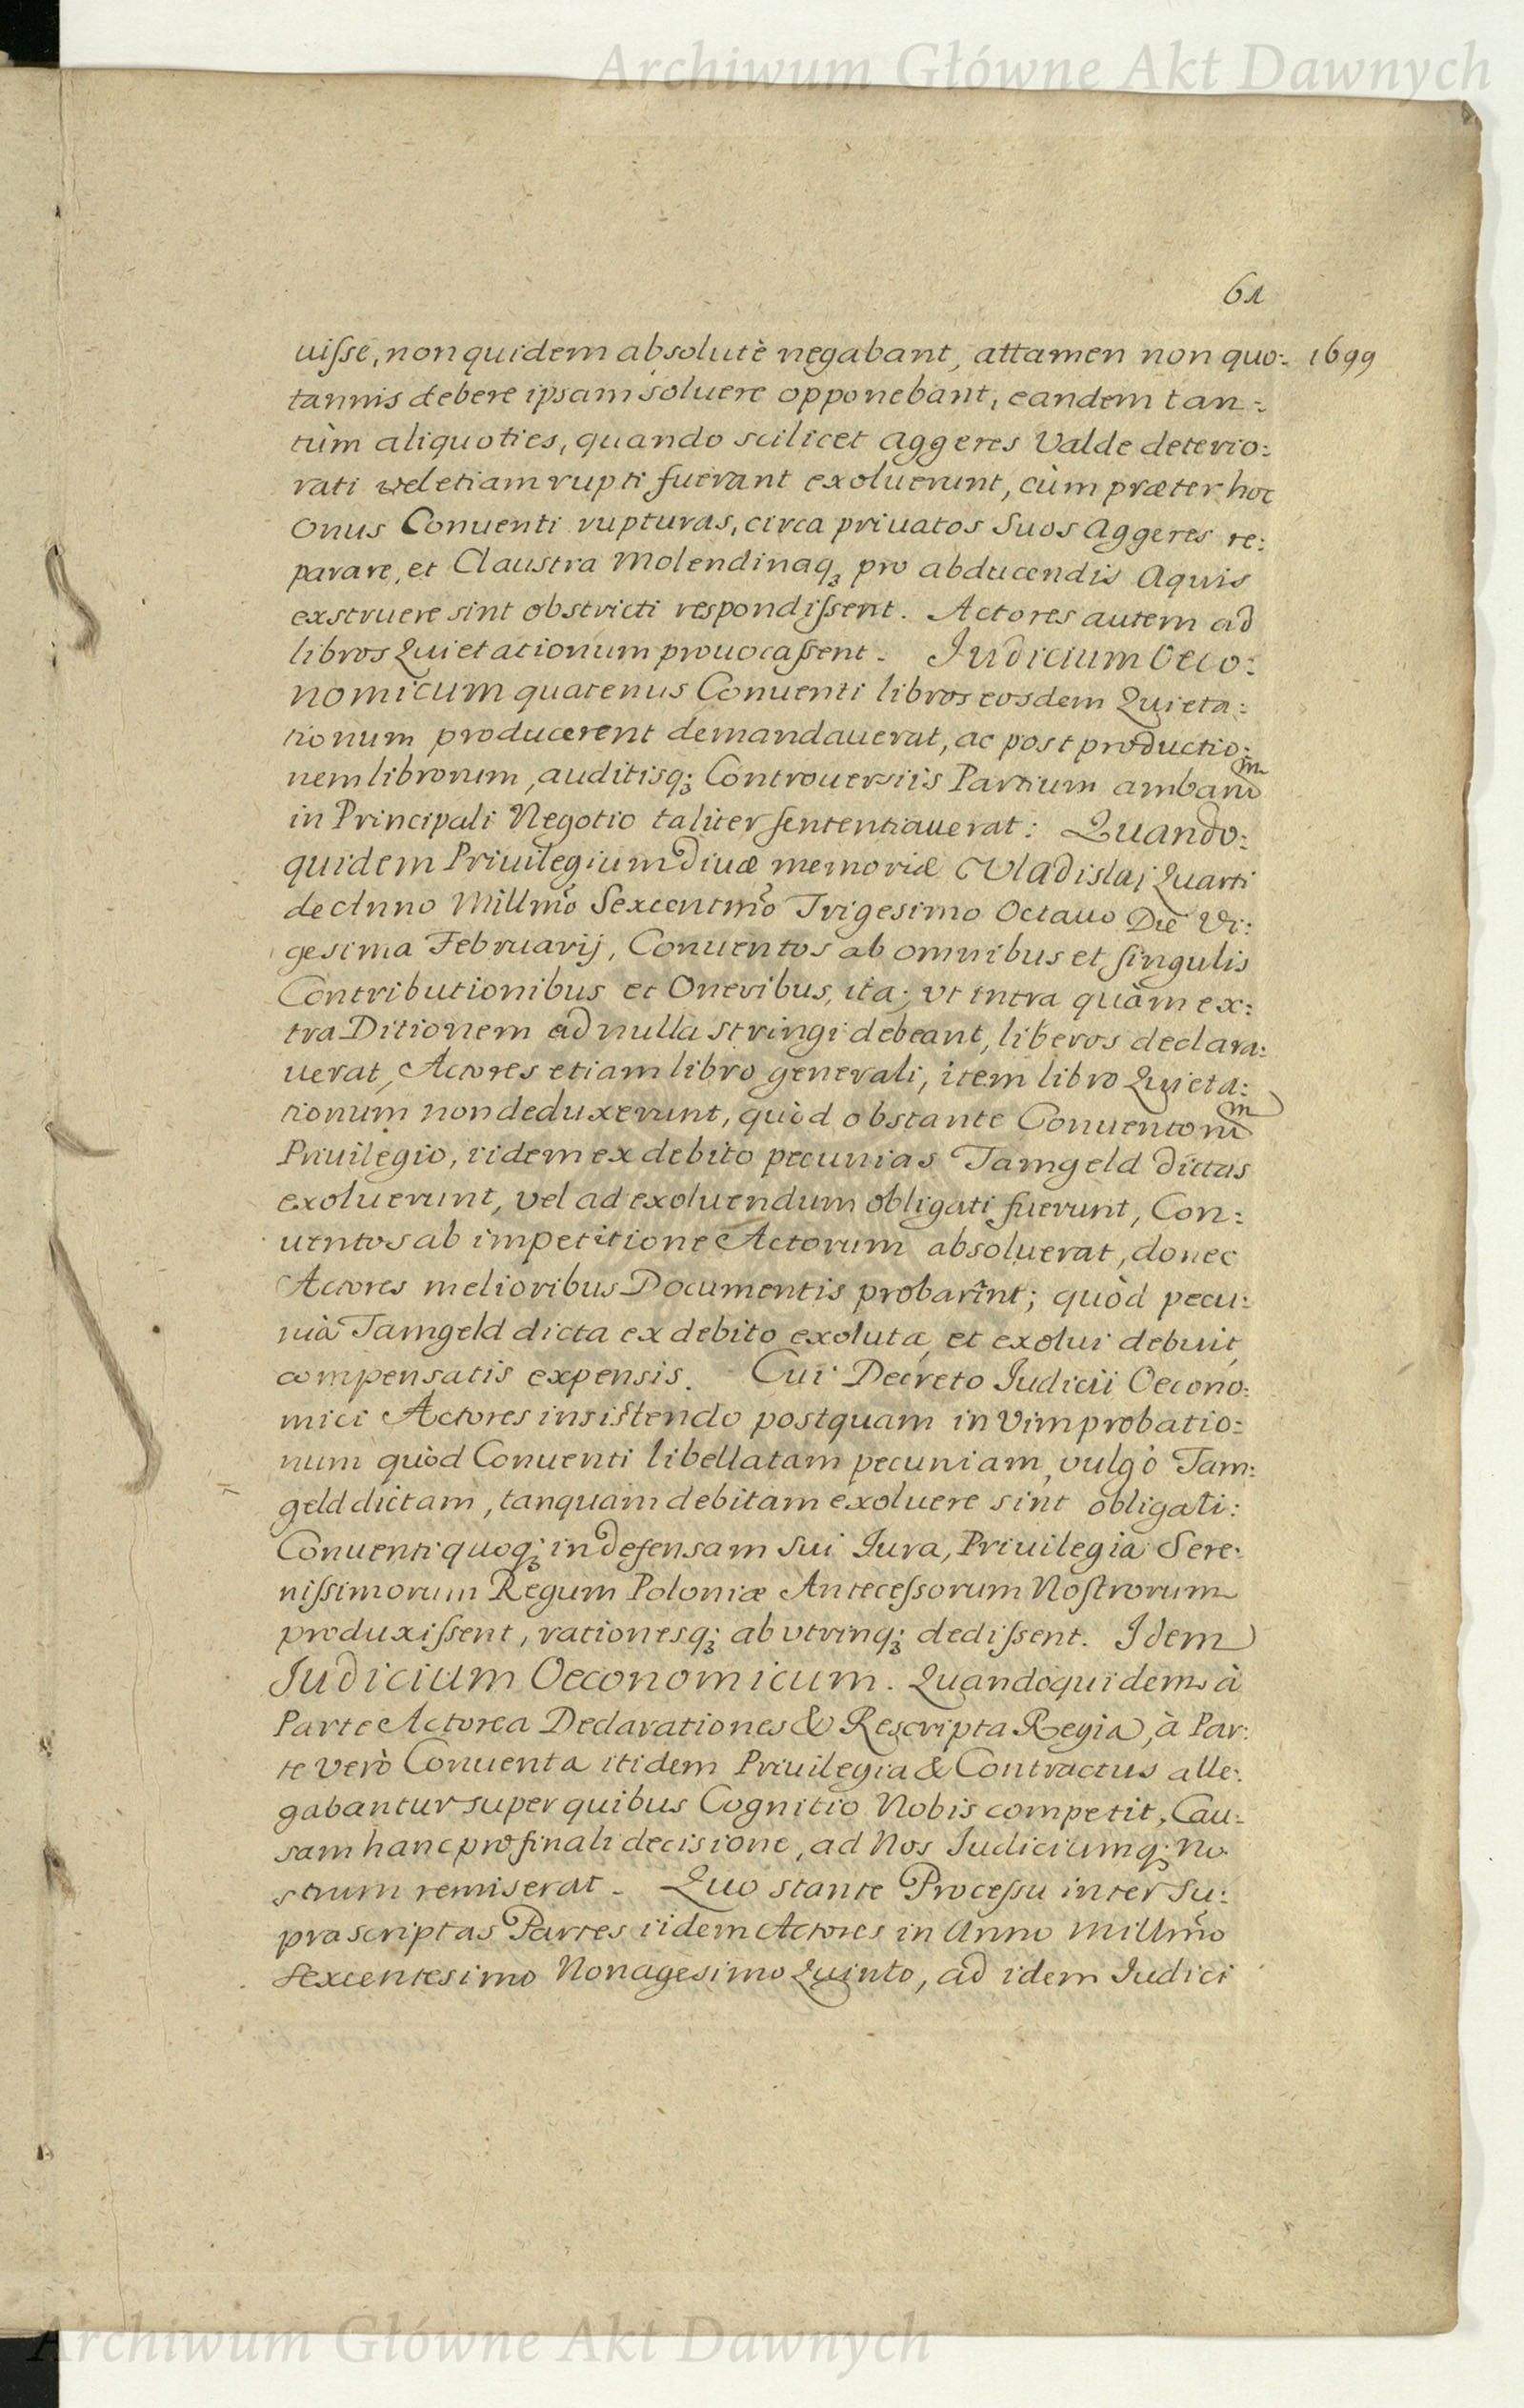 Archiwum Główne Akt Dawnych
61
uisse, non quidem absolutè negabant, attamen non quo: 1699
tannis debere ipsam soluere opponebant, eandem tan:
tùm aliquoties, quando scilicet Aggeres Valde deterio:
rati vel etiam rupti fuerant exoluerunt, cùm præter hoc
Onus Conuenti rupturas, circa priuatos Suos Aggeres re:
parare, et Claustra Molendinaq; pro abducendis Aquis
exstruere sint obstricti respondissent. Actores autem ad
libros Quietationum prouocassent. Judicium Oeco:
nomicum quatenus Conuenti libros eosdem Quieta:
tionum producerent demandauerat, ac post productio:
nem librorum, auditisq; Controuersiis Partium ambarũ
in Principali Negotio taliter sententiauerat: Quando:
quidem Priuilegium Diuæ memoriæ Vladislai Quarti
de Anno Millmo Sexcentmo Trigesimo Octauo Die Vi:
gesima Februarij, Conuentos ab omnibus et singulis
Contributionibus et Oneribus, ita, vt intra quàm ex:
tra Ditionem ad nulla stringi debeant, liberos declara:
uerat, Actores etiam libro generali, item libro Quieta:
tionum non deduxerunt, quòd obstante Conuentorũ
Priuilegio, iidem ex debito pecunias Tamgeld dictas
exoluerunt, vel ad exoluendum obligati fuerunt, Con:
uentos ab impetitione Actorum absoluerat, donec
Actores melioribus Documentis probarint; quòd pecu:
nia Tamgeld dicta ex debito exoluta, et exolui debuit,
compensatis expensis. Cui Decreto Judicii Oecono:
mici Actores insistendo postquam in Vim probatio:
num quòd Conuenti libellatam pecuniam, vulgò Tam:
geld dictam, tanquam debitam exoluere sint obligati:
Conuenti quoq; in defensam Sui Jura, Priuilegia Sere:
nissimorum Regum Poloniæ Antecessorum Nostrorum
produxissent, rationesq; ab vtrinq; dedissent. Idem
Judicium Oeconomicum. Quandoquidem à
Parte Actorea Declarationes & Rescripta Regia, à Par:
te Verò Conuenta itidem Priuilegia & Contractus alle:
gabantur super quibus Cognitio Nobis competit, Cau:
sam hanc pro finali decisione, ad Nos Judiciumq; No
strum remiserat. Quo stante Processu inter Su:
prascriptas Partes iidem Actores in Anno Millmo
Sexcentesimo Nonagesimo Quinto, ad idem Judici
Archiwum Główne Akt Dawnych